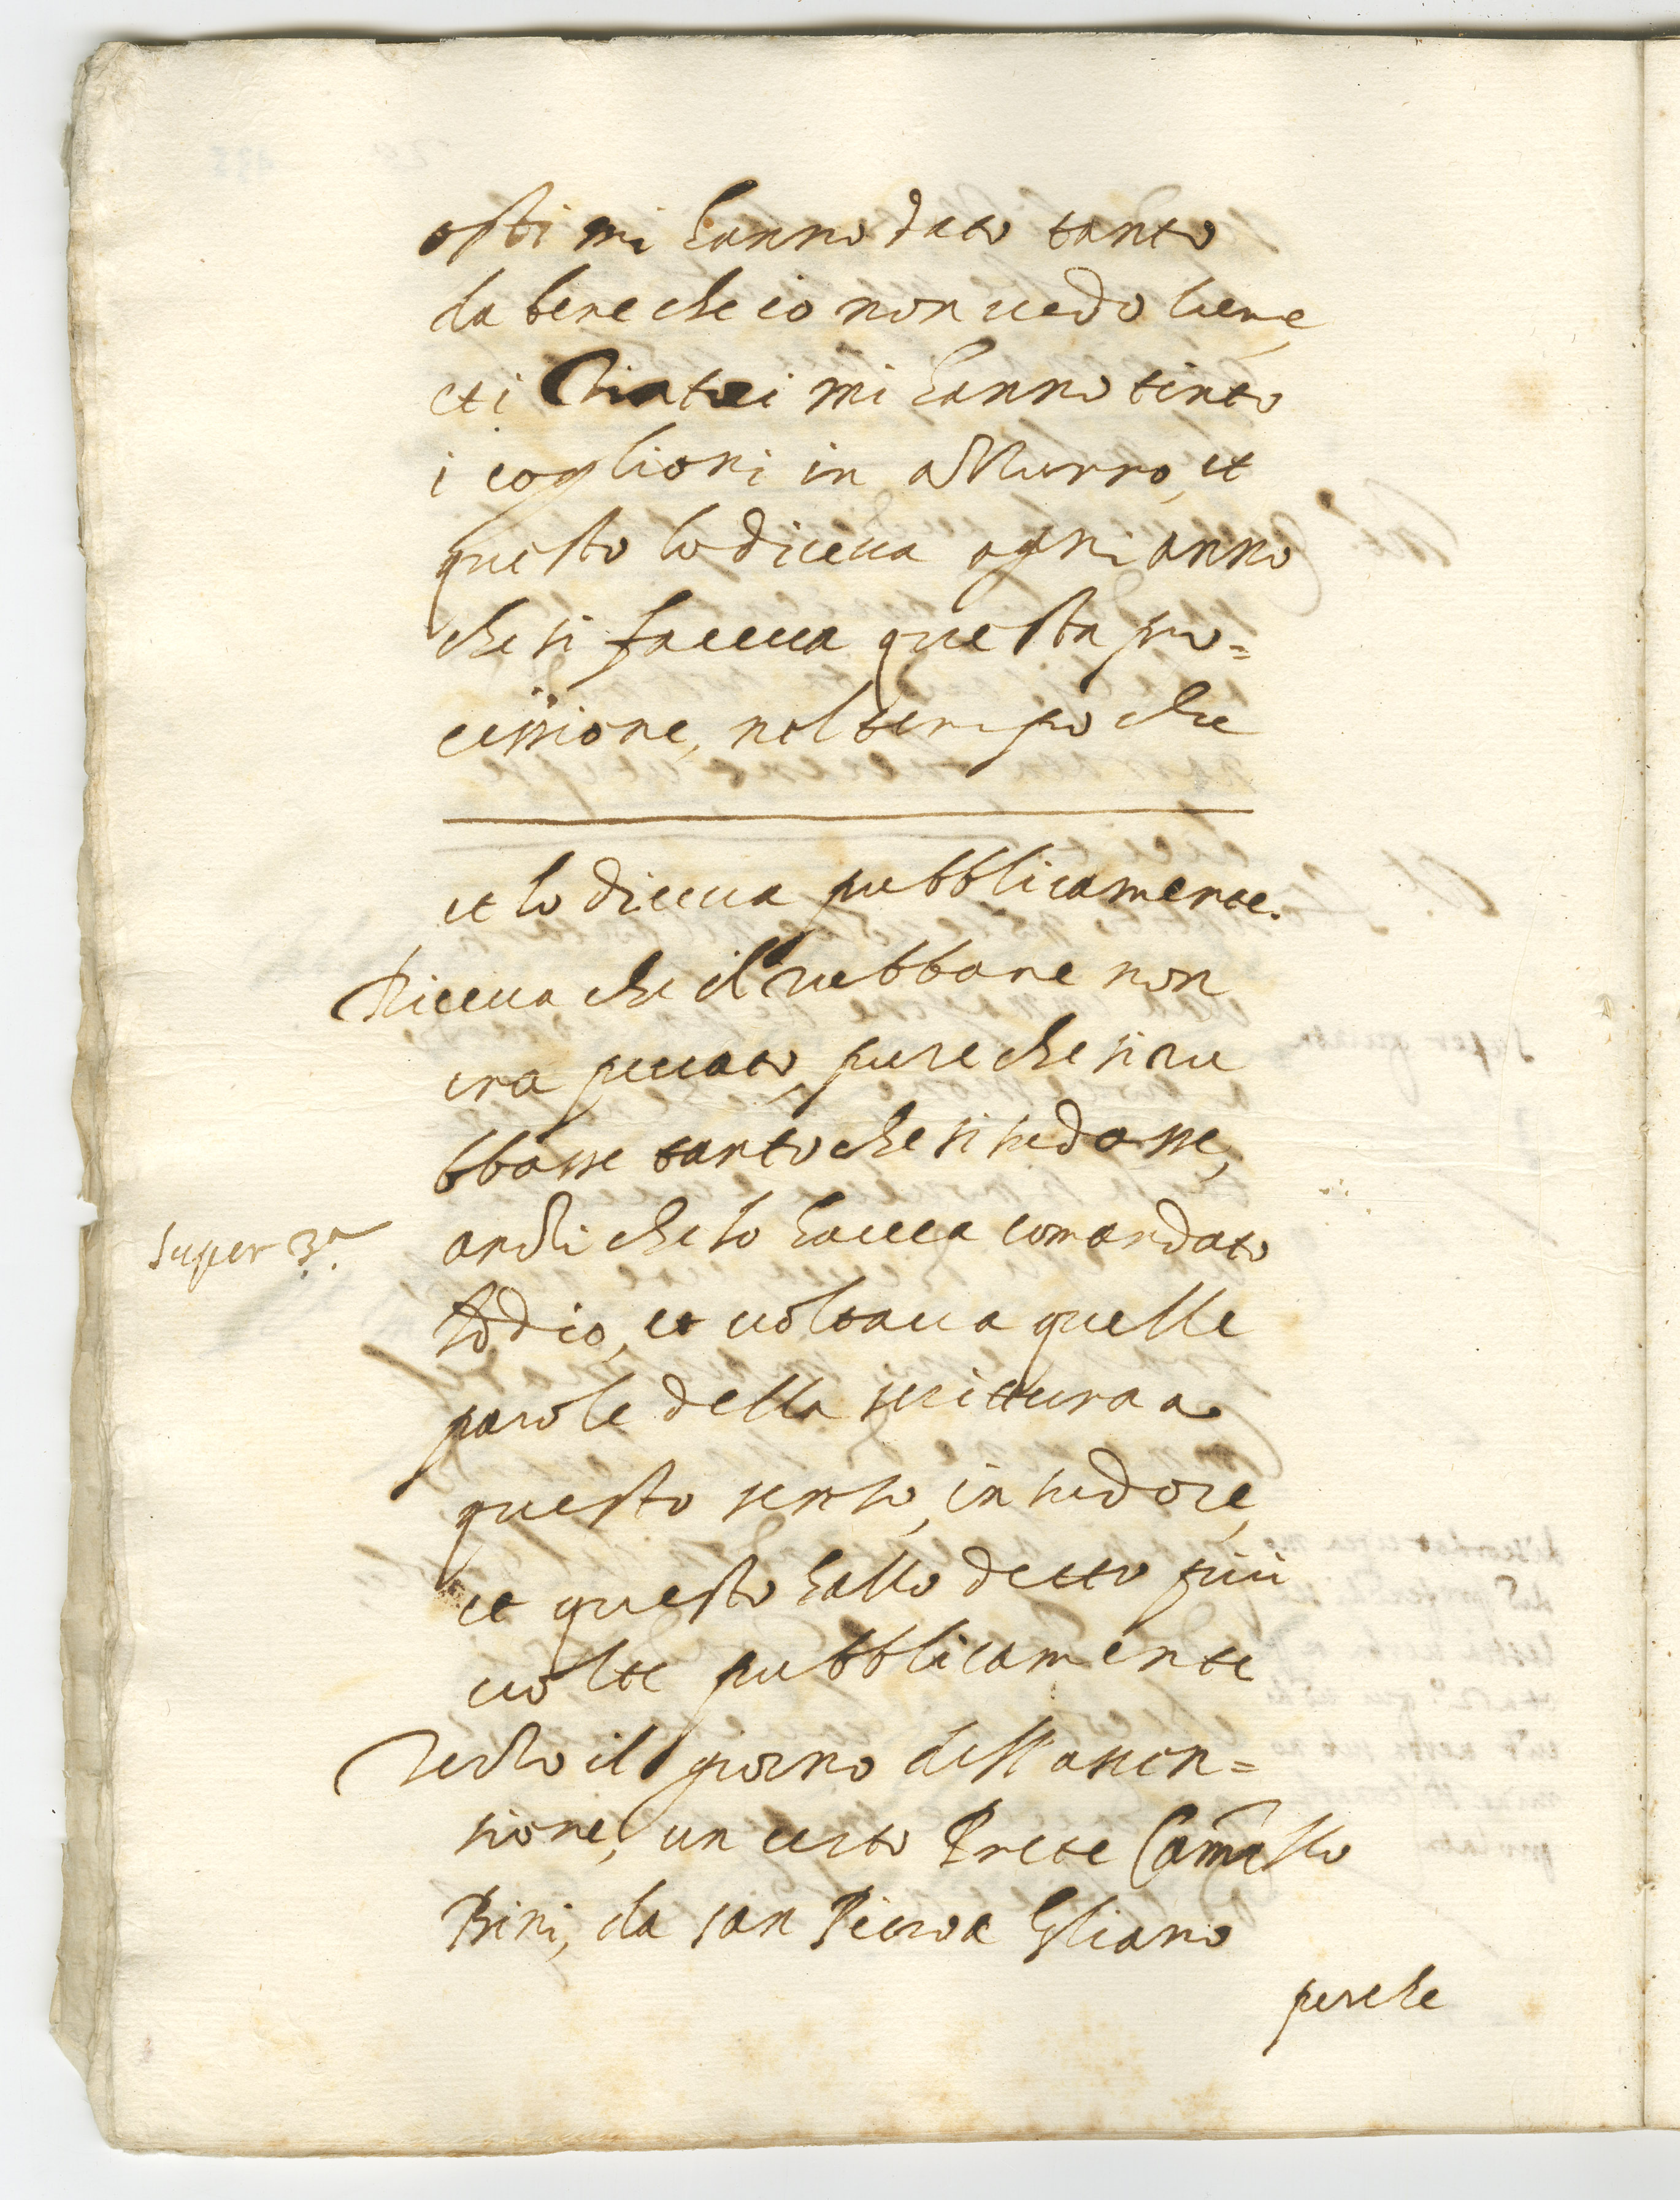 osti mi hanno dato tanto
da bere che io non uedo lume,
et i mi hanno tinto
i coglioni in azzurro, et
questo lo diceua ogni anno
che si faceua questa pro=
cissione, nel tempo che
et lo diceua pubblicamente.
Diceua che il rubbare non
era peccato, pure che si ru
bbasse tanto che si sudasse,
anzi che lo haueua comandato
Iddio, et uoltaua quelle
parole della scrittura a
questo senso, in sudore,
et questo hallo detto più
uolte pubblicamente
super 3.ª
il giorno dell'ascen=
sione, un certo Prete Camillo
Bini, da san Piero a Gliano
perche